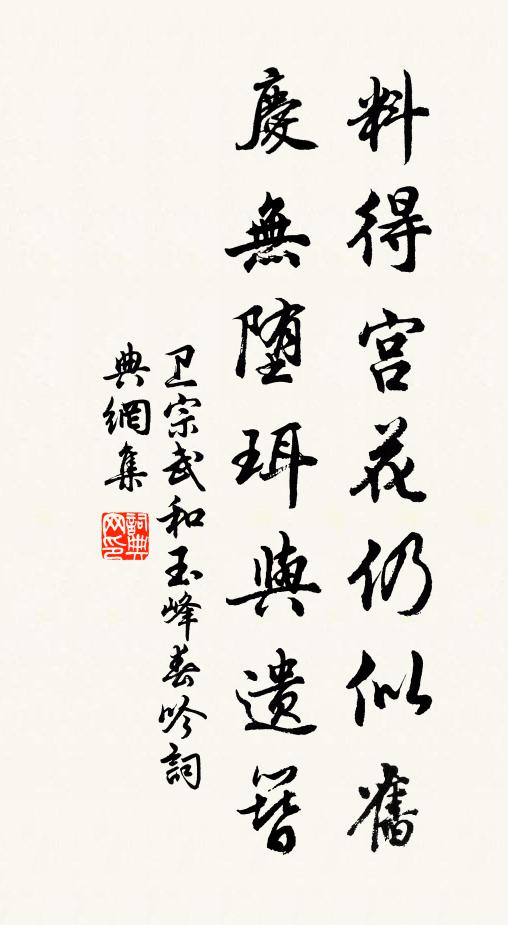 料得宫花仍似舊
慶無墮珥與遺簪
卫宗武和玉峰春吟詞
典網集
詞典
网印